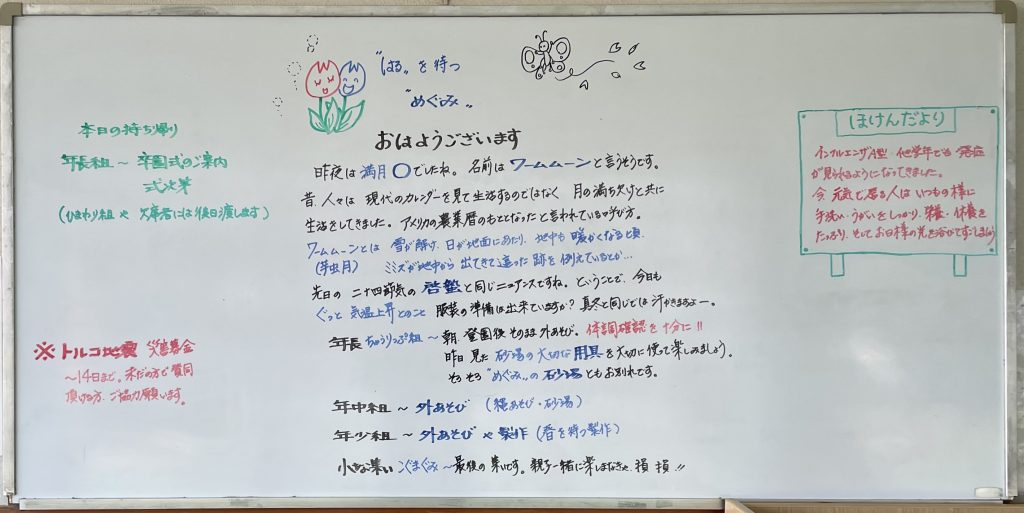 "はる"を待つ
"めぐみ"
おはようございます
昨夜は満月〇でたね。名前はワームムーンと言うそうです。
昔、人々は 現代のカレンダーを見て生活するのではなく 月の満ち欠けと共に
生活をしてきました。アメリカの農業暦のもととなったと言われている呼び方。
ワームムーンとは 雪が解け、日が地面にあたり、地中も暖かくなる頃、
(芽虫月) ミミズが地中から出てきて這った跡を例えているとか…
先日の 二十四節気の啓蟄と同じニュアンスですね。ということで、今日も
ぐっと気温上昇とのこと 服装の準備は出来ていますか?真冬と同じでは汗かきますよー。
年長 ちゅうりっぷ組〜朝、登園後そのまま外あそび。体調確認を十分に!!
昨日見た砂場の大切な用具を大切に使って楽しみましょう。
そろそろ"めぐみ"の砂場ともお別れです。
年中組〜外あそび(縄あそび・砂場)
年少組〜外あそびや製作(春を待つ製作)
小さな集い こぐまぐみ〜最後の集いです。親子一緒に楽しまなきゃ、損損!!
本日の持ち帰り
年長組〜卒園式のご案内
式次第
(ひまわり組や欠席者には後日渡します)
※トルコ地震 災害募金
〜14日まで。未だの方で賛同
頂ける方、ご協力願います。
ほけんだより
インフルエンザA型 他学年でも発症
が見られるようになってきました。
今、元気で居る人はいつもの様に
手洗い・うがいをしっかり、栄養・休養を
たっぷり、そしてお日様の光を浴びてすごしましょう